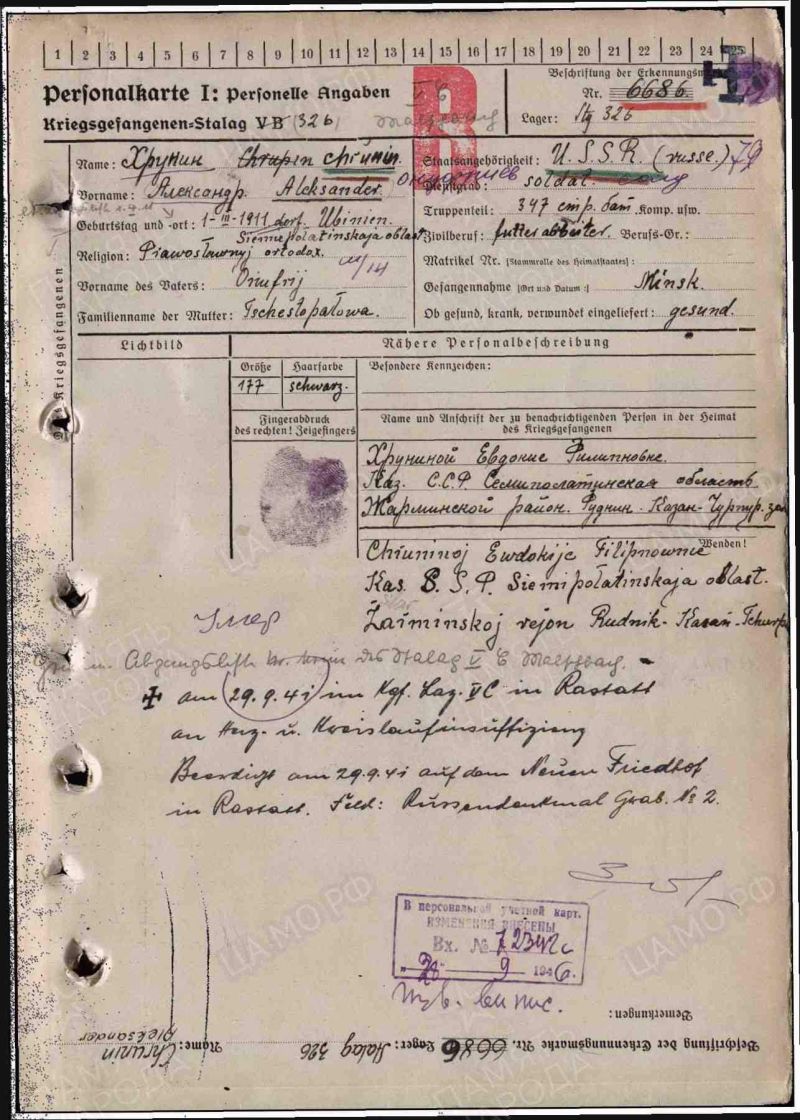 1 2 3 4 5 6 7 8 9 10 11 12 13 14 15 16 17 18 19 20 21 22 23 24 25
Personalkarte I: Personelle Angaben
Kriegsgefangenen-Stalag VB (326)
V C
R
Beschriftung der Erkennungsmarke
Nr. 6686
Lager: Stg 326
Name: Хрунин Chrupin chrunin.
Staatsangehörigkeit: U.S.S.R. (russe.)
Vorname: Александр. Aleksander.
Dienstgrad: soldat.
Truppenteil: 347 стр. бат. Komp. usw.
Geburtstag und -ort: 1-III-1911 dorf. Ubinien.
Siemiepolatinskaja oblast
Zivilberuf: futterarbeiter. Berufs-Gr.:
Religion: Prawosławnyj ortodox.
Matrikel Nr. (Stammrolle des Heimatstaates):
Vorname des Vaters: Onufrij
Gefangennahme (Ort und Datum:) Minsk.
Familienname der Mutter: Tschestopałowa.
Ob gesund, krank, verwundet eingeliefert: gesund.
Des Kriegsgefangenen
Lichtbild
Nähere Personalbeschreibung
Größe Haarfarbe Besondere Kennzeichen:
177 schwarz.
Fingerabdruck
des rechten! Zeigefingers
Name und Anschrift der zu benachrichtigenden Person in der Heimat
des Kriegsgefangenen
Хруниной Евдокие Филипновне.
Каз. С.С.Р. Семипослатинская область
Жарминской район. Рудник. Казан-
Wenden!
Chruninoj Ewdokije Filipnownie
Kas. S.S.P. Siemipołatinskaja oblast.
Żarminskoj rejon Rudnik-Kasań-
Умер
Abgangsliste des Stalag V C
am 29.9.41 im Kgf. Laz. VC in Rastatt
an Herz- u. Kreislaufinsuffizienz
Beerdigt am 29.9.41 auf dem Neuen Friedhof
in Rastatt. Feld: Russendenkmal Grab. № 2.
В персональной учетной карт.
ИЗМЕНЕНИЯ ВНЕСЕНЫ
Вх. №
9 1946.
Bemerkungen:
Beschriftung der Erkennungsmarke Nr. 6686 Lager: Stalag 326 Name: Chrunin
Aleksander
ЦАМО.РФ
ПАМЯТЬ
НАРОДА